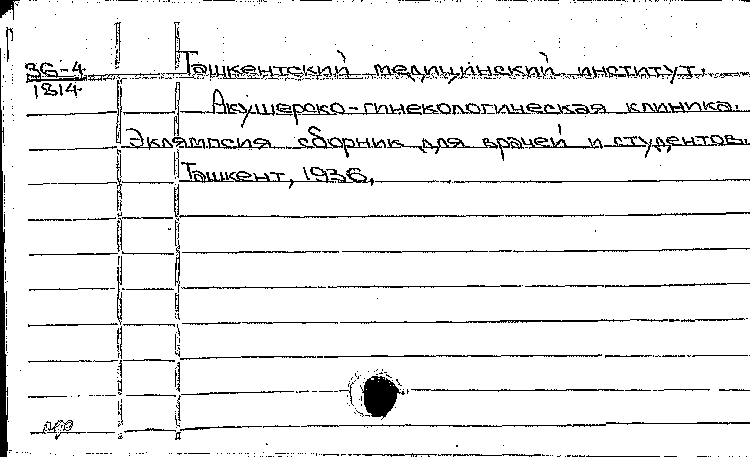 36-4 Ташкентский медицинский институт.
1814
Акушерско-гинекологическая клиника.
Эклямпсия сборник для врачей и студентов.
Ташкент, 1936,